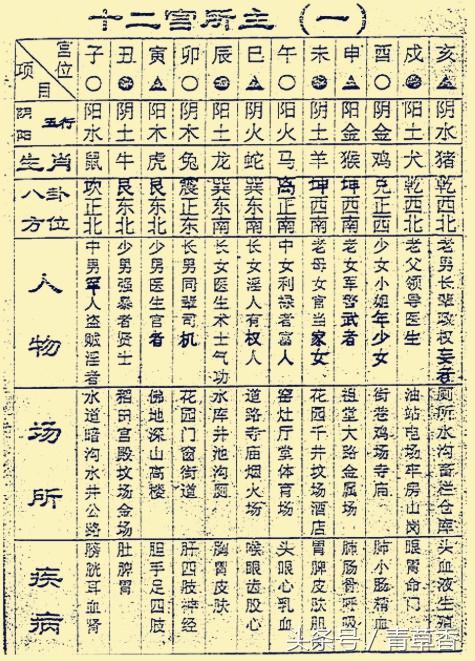 十二宫所主(一)
宫位 项目 子 丑 寅 卯 辰 巳 午 未 申 酉 戌 亥
阴阳五行 阳水 阴土 阳木 阴木 阳土 阴火 阳火 阴土 阳金 阴金 阳土 阴水
生肖 鼠 牛 虎 兔 龙 蛇 马 羊 猴 鸡 犬 猪
八卦方位 坎正北 艮东北 艮东北 震正东 巽东南 巽东南 离正南 坤西南 坤西南 兑正西 乾西北 乾西北
人物
中男军人盗贼淫者
少男强暴者贤士
少男医生官者
长男同辈司机
长女医生术士气功
长女淫人有权人
中女利禄者富人
老母女官当家女
老女军警武者
少女小姐年少女
老父领导医生
老男长辈政权妄者
场所
水道暗沟水井公路
稻田宫殿坟场金场
佛地深山高楼
花园门窗街道
水库井池沟厕
道路寺庙烟火场
窑灶厅堂体育场
花园千井坟场酒店
祖堂大路金属场
街巷鸡场寺庙
油站电场牢房山岗
厕所水沟畜栏仓库
疾病
膀胱耳血肾
肚脾胃
胆手足四肢
肝四肢神经
胸胃皮肤
喉眼齿股心
头眼心乳血
胃脾皮肤肌
肺肠骨呼吸
肺小肠精血
眼胃命门
头血液生殖
头条号/青草香